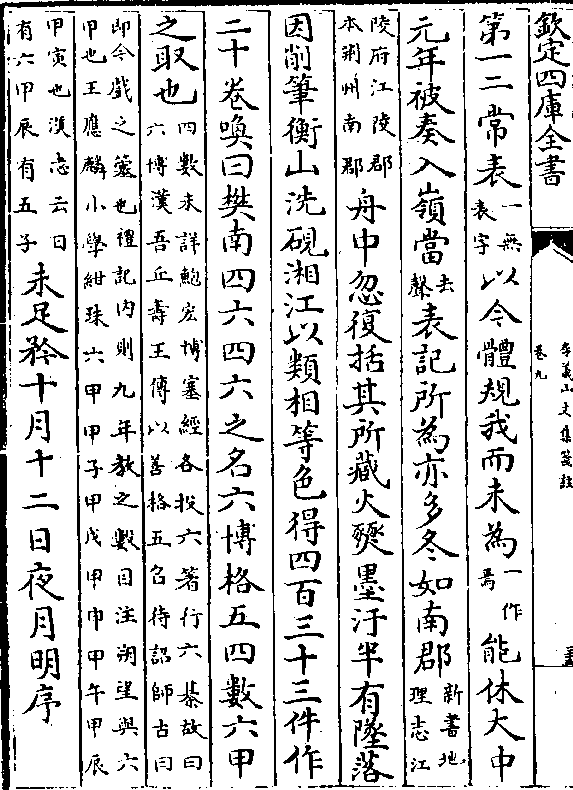 欽定四庫全書
李義山文集箋註
卷九
第一二常表一無表字以今體規我而未為一作焉能休大中
元年被奏入嶺當去聲表記所為亦多冬如南郡新書地理志江
陵府江陵郡本荆州南郡舟中忽復括其所藏火爇墨汙半有墜落
因削筆衡山洗硯湘江以類相等色得四百三十三件作
二十卷喚曰樊南四六四六之名六博格五四數六甲
之取也四數未詳鮑宏博塞經各投六箸行六棊故曰六博漢吾丘壽王傳以善格五召待詔師古曰
即今戲之簺也禮記内則九年教之數目注朔望與六甲也王應麟小學紺珠六甲甲子甲戌甲申甲午甲辰
甲寅也漢志云日有六甲辰有五子未足矜十月十二日夜月明序